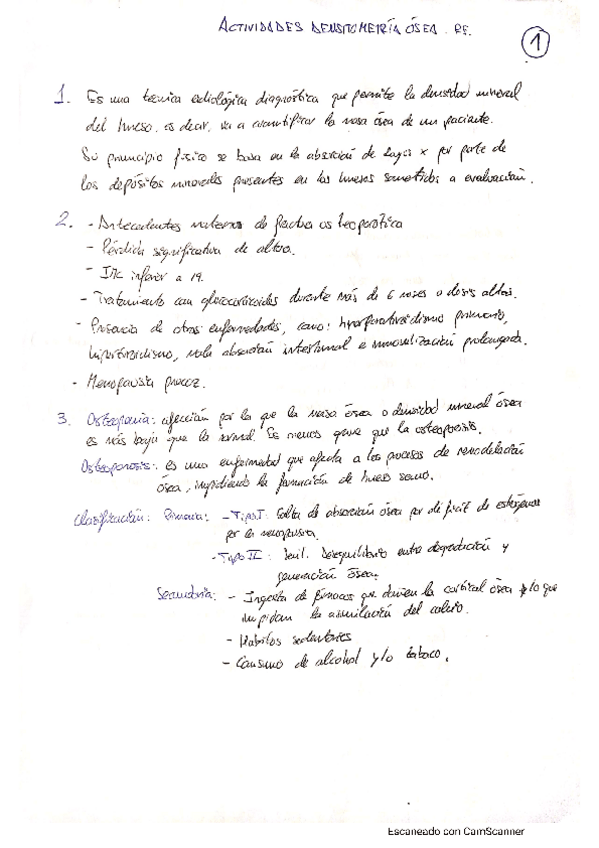 ACTIVIDADES DENSITOMETRÍA ÓSEA. RE.
1
1. Es una técnica radiológica diagnóstica que permite la densidad mineral
del hueso, es decir, va a cuantificar la masa ósea de un paciente.
Su principio físico se basa en la absorción de rayos x por parte de
los depósitos minerales presentes en los huesos sometidos a evaluación.
2. - Antecedentes maternos de fractura osteoporótica
- Pérdida significativa de altura.
- IMC inferior a 19.
- Tratamiento con glucocorticoides durante más de 6 meses o dosis altas.
- Presencia de otras enfermedades, como: hiperparatiroidismo primario,
hipertiroidismo, mala absorción intestinal e inmovilización prolongada.
- Menopausia precoz.
3. Osteopenia: afección por la que la masa ósea o densidad mineral ósea
es más baja que la normal. Es menos grave que la osteoporosis.
Osteoporosis: es una enfermedad que afecta a los procesos de remodelación
ósea, impidiendo la formación de hueso sano.
Clasificación: Primaria: - Tipo I: Falta de absorción ósea por déficit de estrógenos
por la menopausia.
- Tipo II: Senil. Desequilibrio entre degradación y
generación ósea.
Secundaria: - Ingesta de fármacos que dañen la cortical ósea y lo que
impidan la asimilación del calcio.
- Hábitos sedentarios
- Consumo de alcohol y/o tabaco.
Escaneado con CamScanner